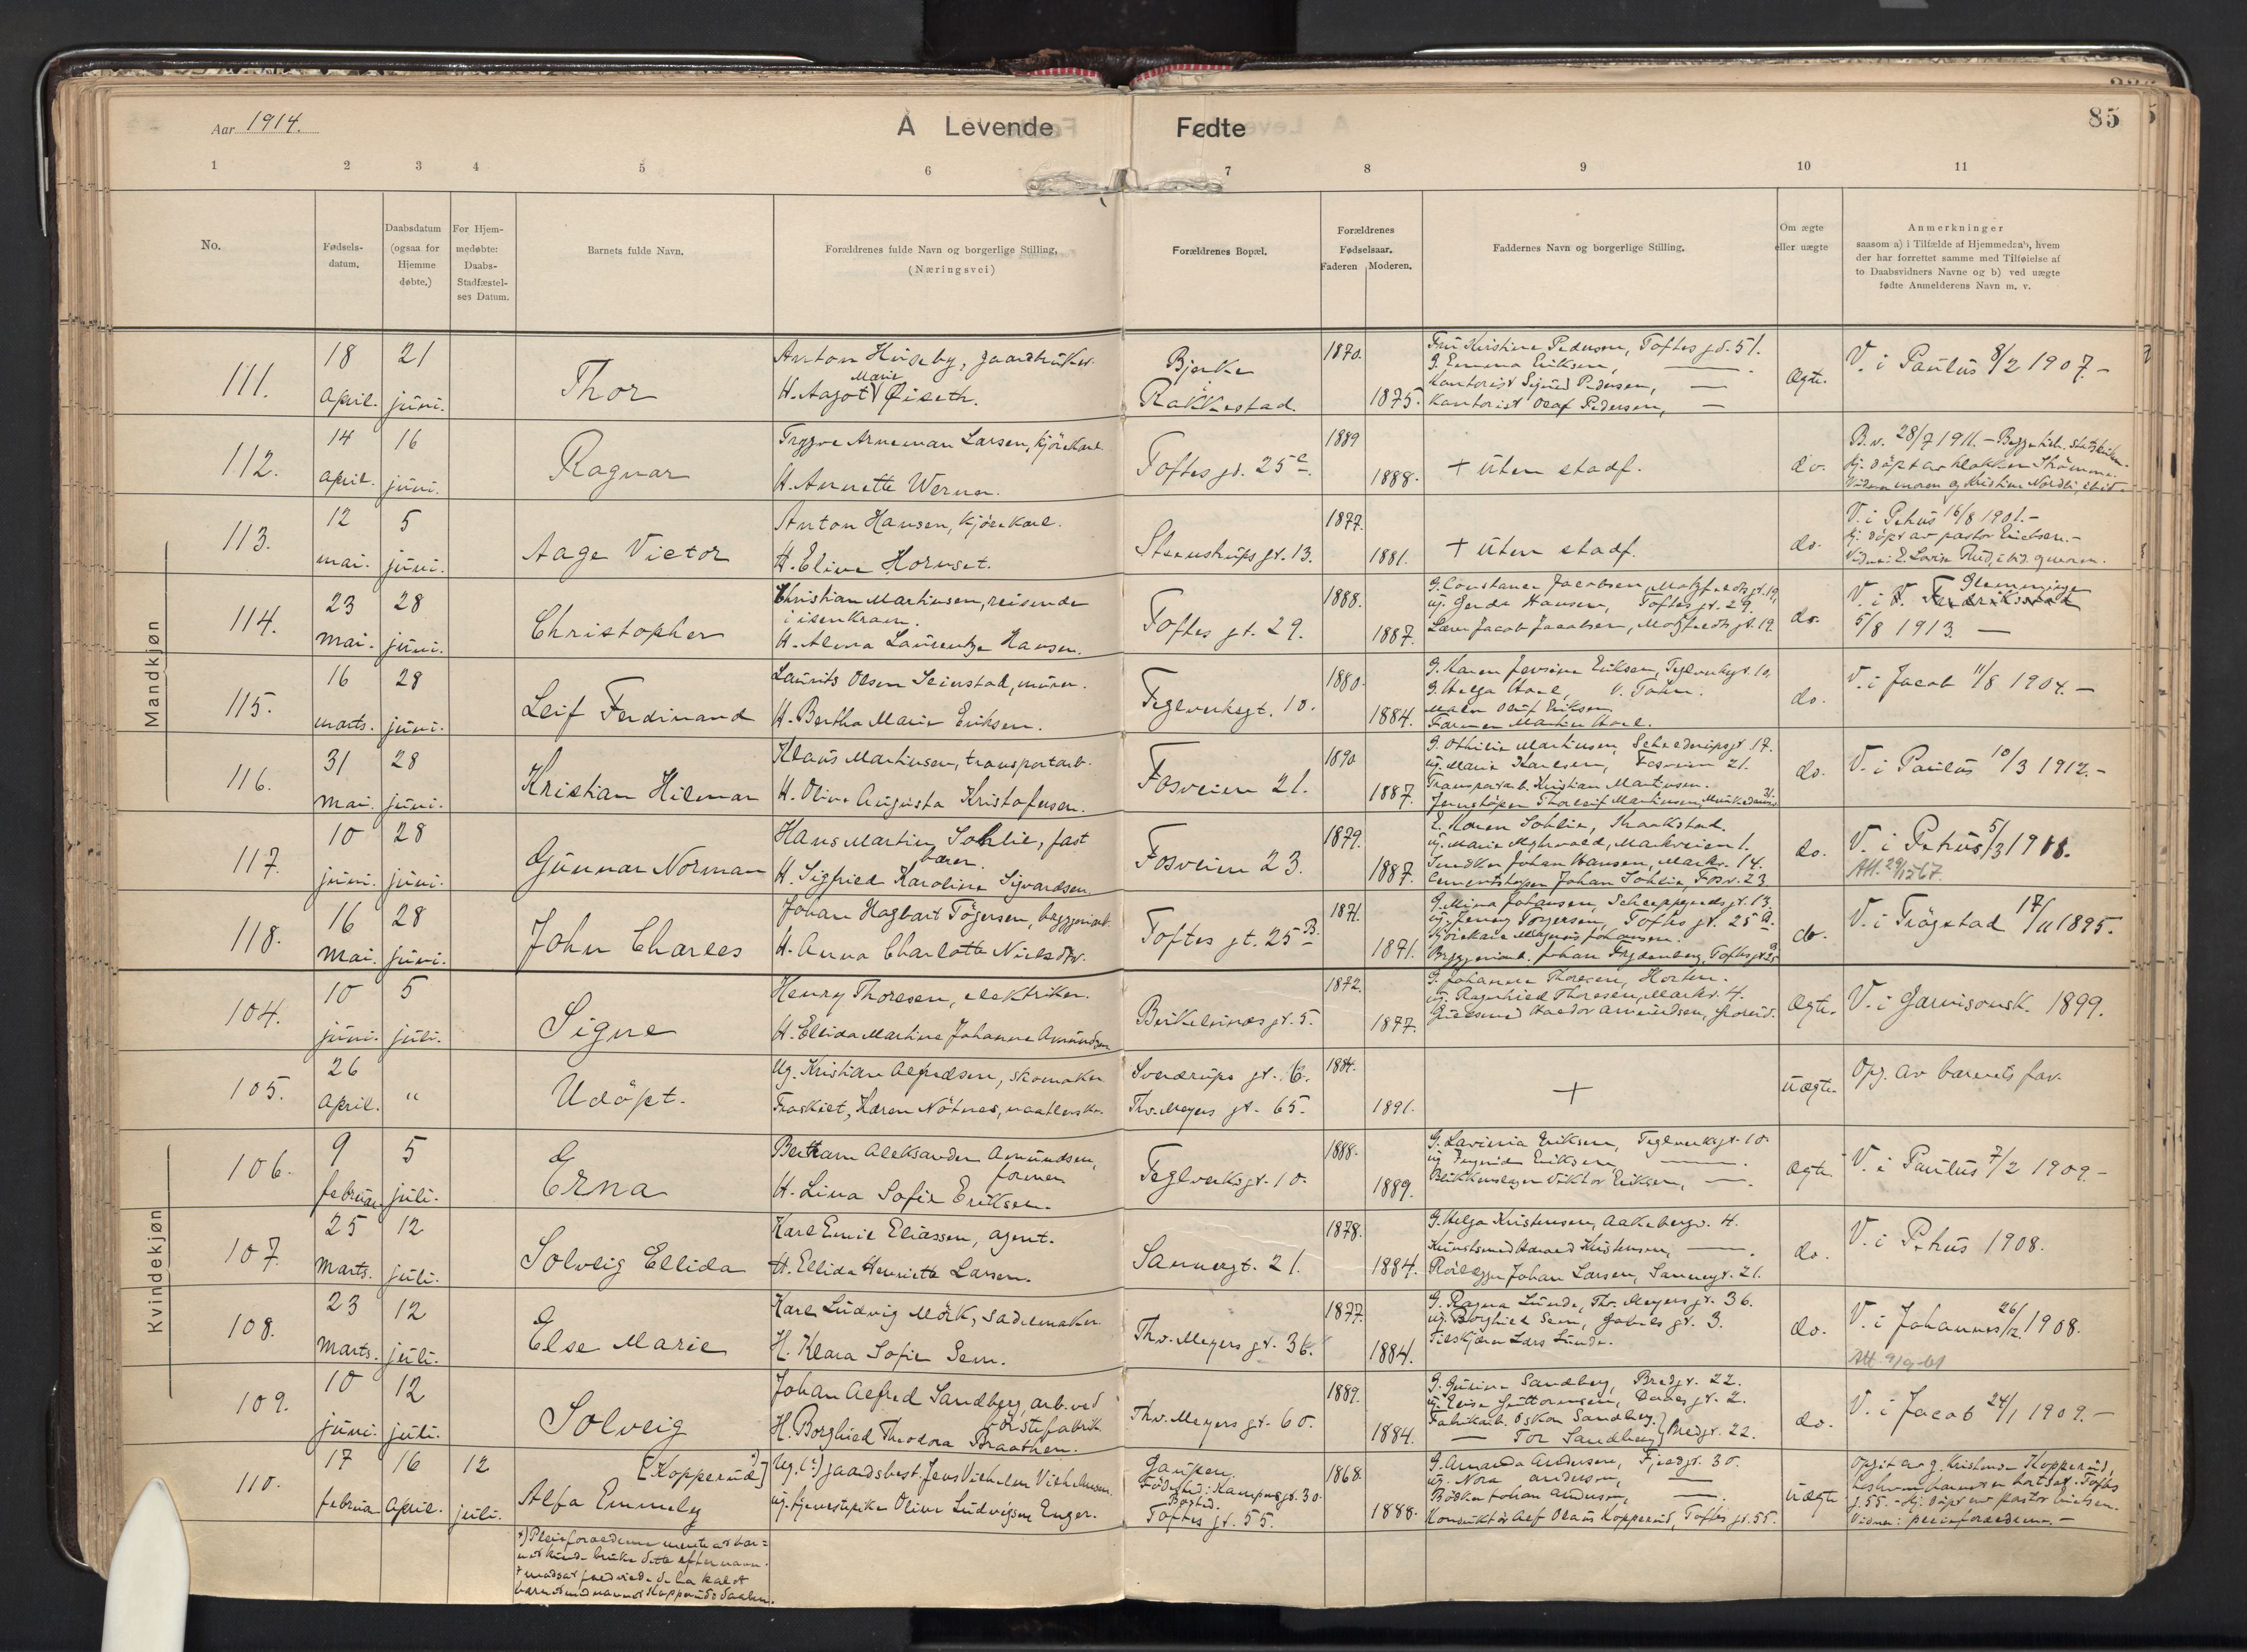 Aar 1914.
A Levende Fødte
85
1 2 3 4 5 6 7 8 9 10 11
No.
Fødselsdatum.
Daabsdatum (ogsaa for Hjemme døbte.)
For Hjemmedøbte: Daabs-Stadfæstelses Datum.
Barnets fulde Navn.
Forældrenes fulde Navn og borgerlige Stilling,
(Næringsvei)
Forældrenes Bopæl.
Forældrenes Fødselsaar.
Faderen Moderen.
Faddernes Navn og borgerlige Stilling.
Om ægte eller uægte
Anmerkninger
saasom a) i Tilfælde af Hjemmedaab, hvem
der har forrettet samme med Tilføielse af
to Daabsvidners Navne og b) ved uægte
fødte Anmelderens Navn m. v.
Mandkjøn
111. 18 april. 21 juni. Thor
Anton Huseby, gaardbruker.
H. Aagot Marie Øiseth.
Bjerke Rakkestad. 1870. 1875.
Fru Kristine Pedersen, Toftes gt. 51.
G. Emma Eriksen, —
Kontorist Sigurd Pedersen, —
Kontorist Olaf Pedersen, —
Ægte. V. i Paulus 8/2 1907.-
112. 14 april. 16 juni. Ragnar
Trygve Arneman Larsen, kjørekarl
H. Annette Werner.
Toftes gt. 25 c. 1889 1888.
+ uten stadf.
do. B.v. 28/7 1911. - Begge tilh. statskirken.
Hj. døpt av klokker Strømme.
Vidner moren og Kristine Nordli,
113. 12 mai. 5 juni. Aage Victor
Anton Hansen, kjørekarl.
H. Eline Hornset.
Steenstrups gt. 13. 1877. 1881.
+ uten stadf.
do. V. i Petrus 16/8 1901.-
Hj. døpt av pastor Erichsen.-
114. 23 mai. 28 juni. Christopher
Christian Martinsen, reisende
i isenkram.
H. Alma Laurentze Hansen.
Toftes gt. 29. 1888. 1887.
G. Constance Jacobsen, Motzfeldts gt. 19,
ug. Gerda Hansen, Toftes gt. 29.
Lærer Jacob Jacobsen, Motzfeldts gt. 19.
do. V. i Glemminge
5/8 1913. —
115. 16 marts. 28 juni. Leif Ferdinand
Laurits Olsen Seierstad, murer.
H. Bertha Marie Eriksen.
Teglverksgt. 10. 1880. 1884.
G. Karen Eriksen, Teglverksgt. 10,
G. Helga
Maler Oluf Eriksen
Former Martin
do. V. i Jacob 11/8 1904. -
116. 31 mai. 28 juni. Kristian Hilmar
Klaus Martinsen, transportarb.
H. Oline Augusta Kristofersen.
Fosveien 21. 1890 1887.
G. Othilie Martinsen, 17.
ug. Marie Karlsen, Fosveien 21.
Transportarb. Kristian Martinsen.
Jernstøper Thorleif Martinsen,
do. V. i Paulus 10/3 1912.-
117. 10 juni. 28 juni. Gunnar Norman
Hans Martin Sohlie, fast
bærer.
H. Sigfried Karoline Sigvardsen.
Fosveien 23. 1879. 1887.
E. Maren Sohlie, Kraakstad.
ug. Marie Myhrvold, Markveien 1.
Snedker Johan Hansen, Markv. 14.
Cementstøper Johan Sohlie, Fosv. 23.
do. V. i Petrus 5/3 1911.
118. 16 mai. 28 juni. John Charles
Johan Hagbart Tøgersen, bryggeriarb.
H. Anna Charlotte Nielsdtr.
Toftes gt. 25 B. 1871. 1871.
G. Mina Johansen, 13.
ug. Jenny Torgersen, Toftes gt. 25 a.
Kjørekarl Magnus Johansen.
Bryggeriarb. Johan Frydenberg, Toftes gt. 25 B
do. V. i Trøgstad 17/11 1895.
Kvindekjøn
104. 10 juni. 5 juli. Signe
Henry Thoresen, elektriker.
H. Ellida Martine Johanne Amundsen
Birkelunds gt. 5. 1872. 1877.
G. Johanne Thoresen, Horten.
ug. Ragnhild Thoresen, Markv. 4.
Guldsmed Haldor Amundsen,
Ægte. V. i Garnisonsk. 1899.
105. 26 april. " Udøpt.
Ug. Kristian Alfredsen, skomaker
Fraskilt, Karen Nøtnes, naatlerske.
Sverdrups gt. 6.
Thv. Meyers gt. 65. 1884. 1891.
+
uægte. Opg. av barnets far.
106. 9 februar. 5 juli. Erna
Bertram Aleksander Amundsen,
former
H. Lina Sofie Eriksen.
Teglverksgt. 10. 1888. 1889.
G. Lavinia Eriksen, Teglverksgt. 10.
ug. Ingrid Eriksen, —
Blikkenslager Viktor Eriksen, —
Ægte. V. i Paulus 7/2 1909.-
107. 25 marts. 12 juli. Solveig Ellida
Karl Emil Eliassen, agent.
H. Ellida Henriette Larsen.
Sannergt. 21. 1878. 1884.
G. Helga Kristensen, Aakebergv. 4.
Kunstsmed Harald Kristensen, —
Rørlægger Johan Larsen, Sannergt. 21.
do. V. i Petrus 1908.
108. 23 marts. 12 juli. Else Marie
Karl Ludvig Mørk, sadelmaker.
H. Klara Sofie Sem.
Thv. Meyers gt. 36. 1877. 1884.
G. Ragna Lunde, Thv. Meyers gt. 36.
ug. Borghild Sem, Gabels gt. 3.
Filskjærer Lars Lunde.
do. V. i Johannes 26/12 1908.
109. 10 juni. 12 juli. Solveig
Johan Alfred Sandberg, arb. ved
børstefabrik
H. Borghild Theodora Braathen.
Thv. Meyers gt. 60. 1889. 1884.
G. Gurine Sandberg, Bredgt. 22.
ug. Elise Guttormsen, Daaes gt. 2.
Fabrikarb. Oskar Sandberg.
— Tor Sandberg } Bredgt. 22.
do. V. i Jacob 24/1 1909.-
110. 17 februar. 16 april. 12 juli. [Kopperud]
Alfa Emmely
Ug. (?) gaardsbest. Jens Vilhelm Vilhelmsen.
ug. tjenestepike Olive Ludvigsen Enger.
Gaupen.
Fødested: Kampensgt. 30.
Bosted.
Toftes gt. 55. 1868. 1888.
G. Amanda Andersen, Fjeldgt. 30.
ug. Nora Andersen, —
Bødker Johan Andersen, —
Konduktør Alf Olaus Kopperud, Toftes gt. 55.
uægte Opgit av g. Kristiane Kopperud,
hos hvem barnet er bortsat. Toftes
g. 55. - Hj. døpt av pastor Erichsen.
Vidner: pleieforældrene. -
*) Pleieforældrene mente at bar-
net kunde bruke dette efternavn.